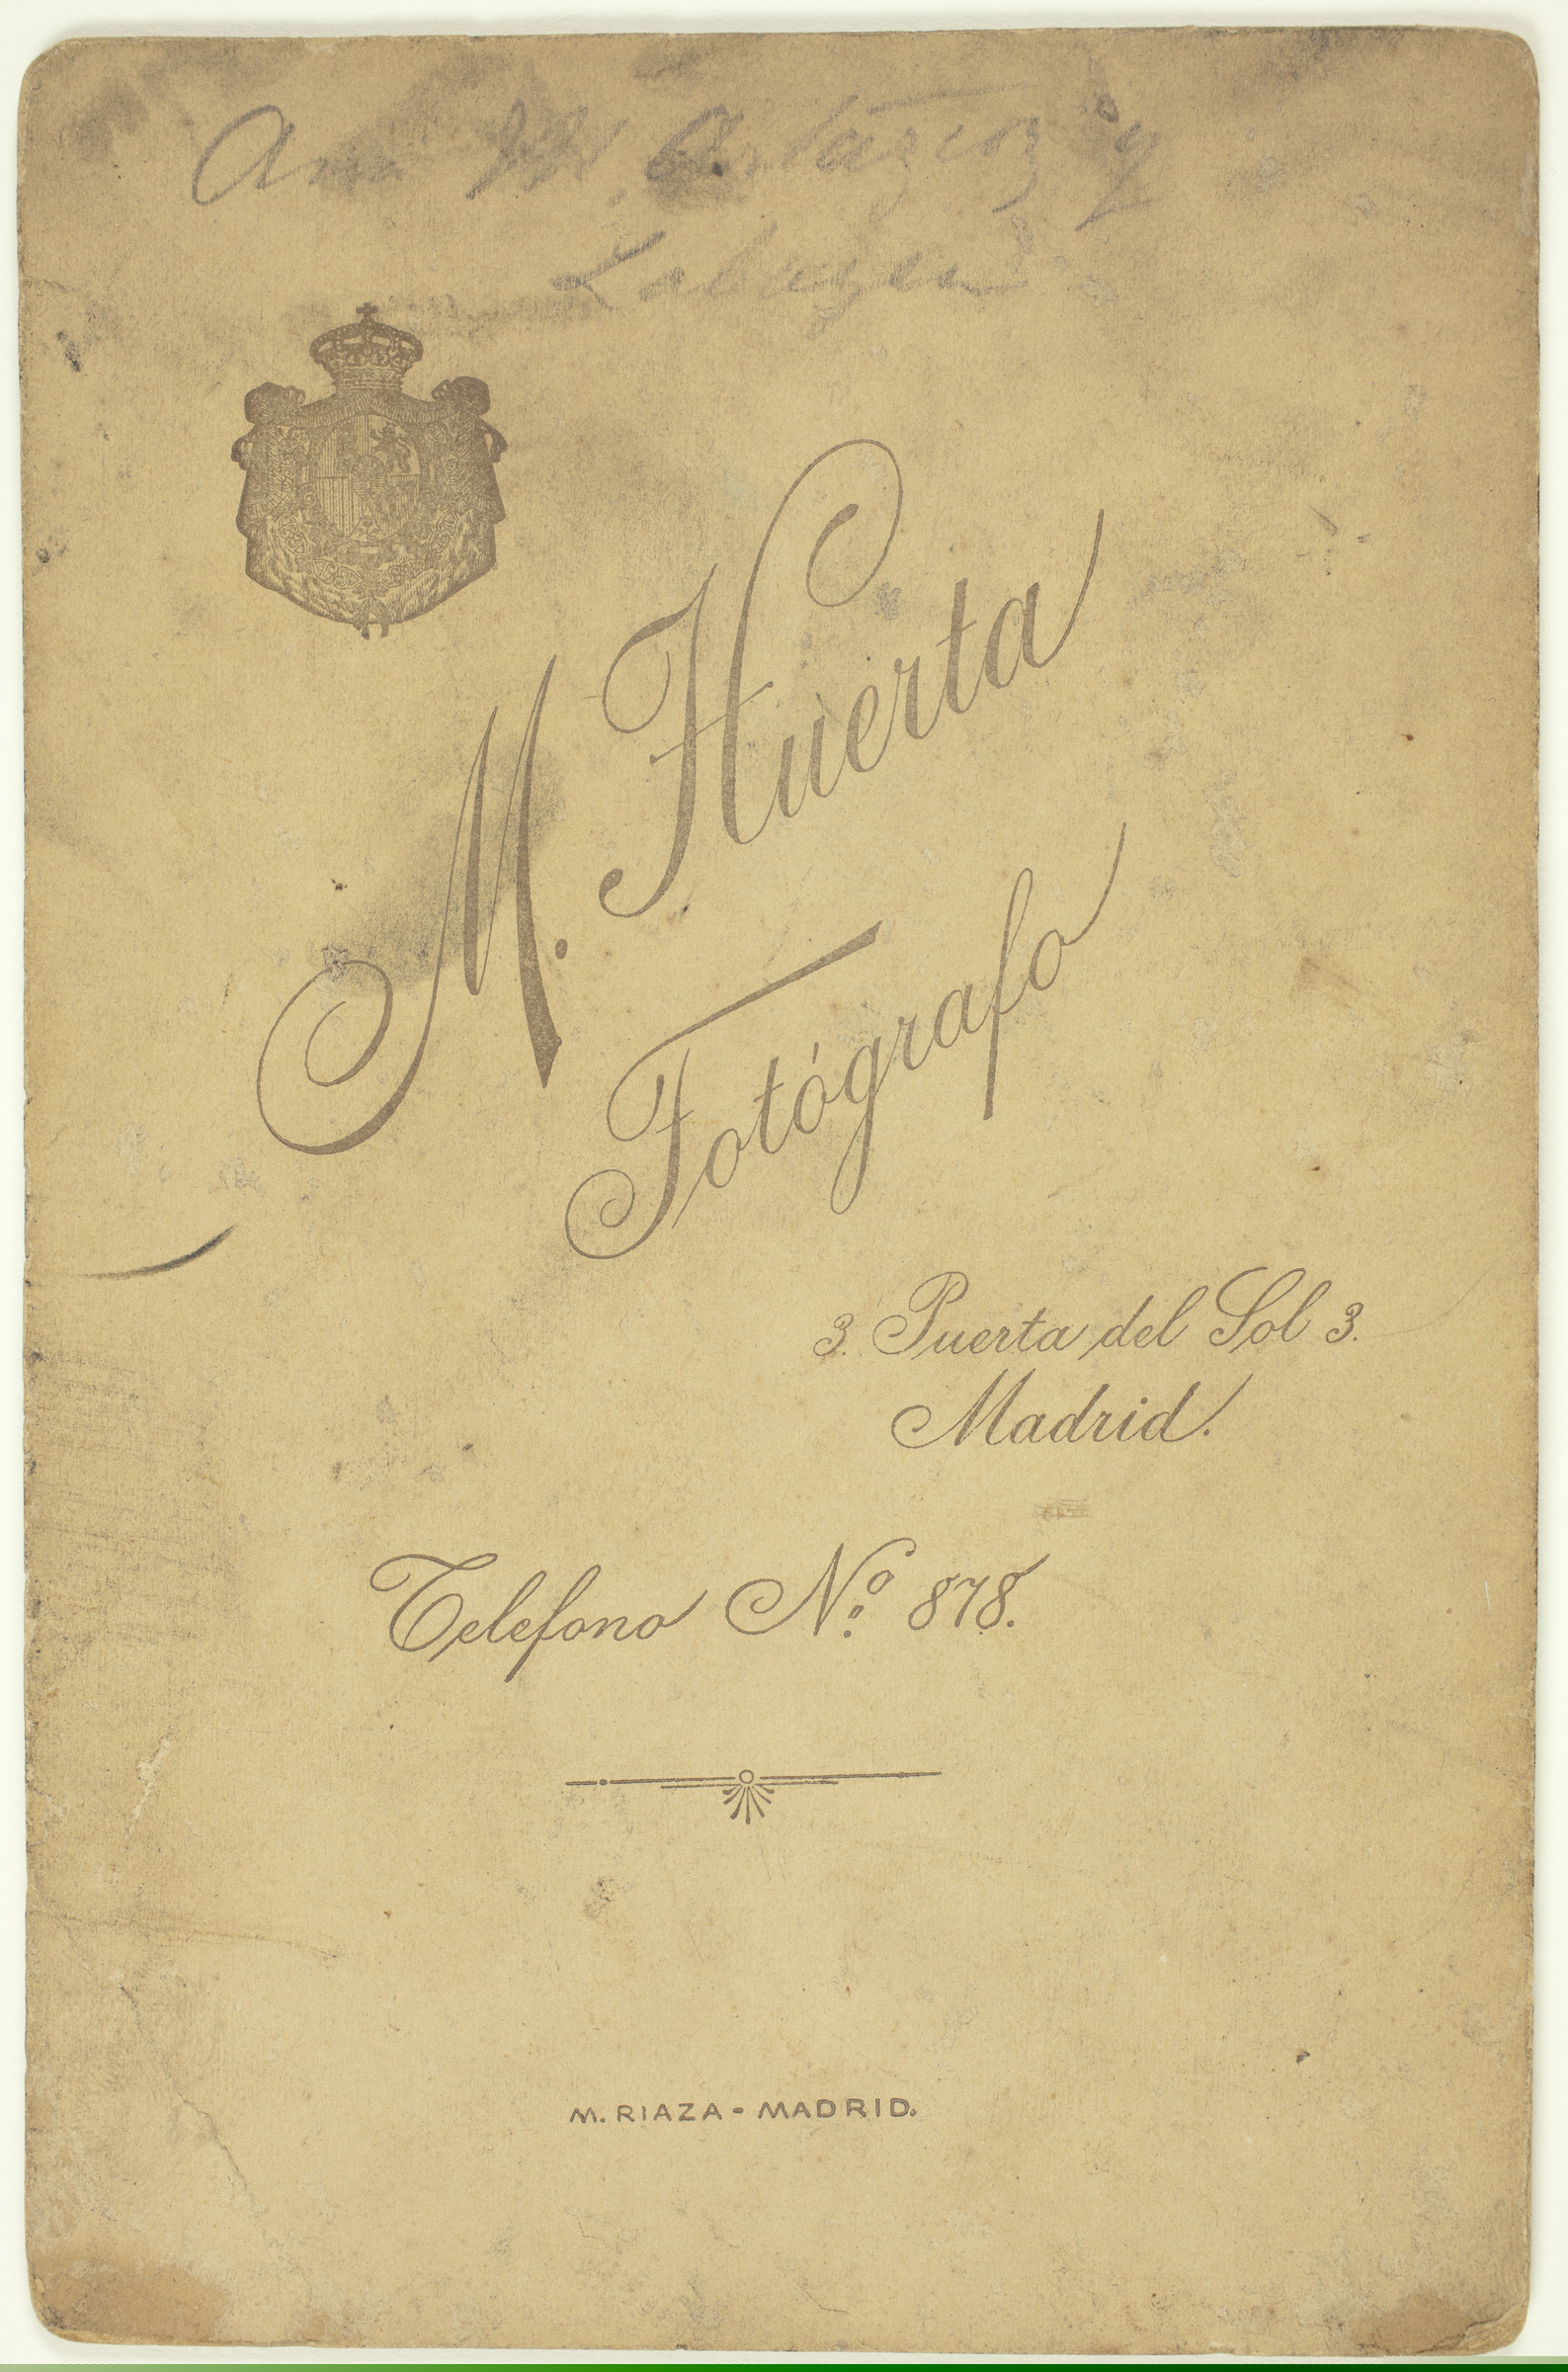 Ana y
M. Huerta
Fotógrafo
3. Puerta del Sol 3.
Madrid.
Telefono Nº 878.
M. RIAZA - MADRID.